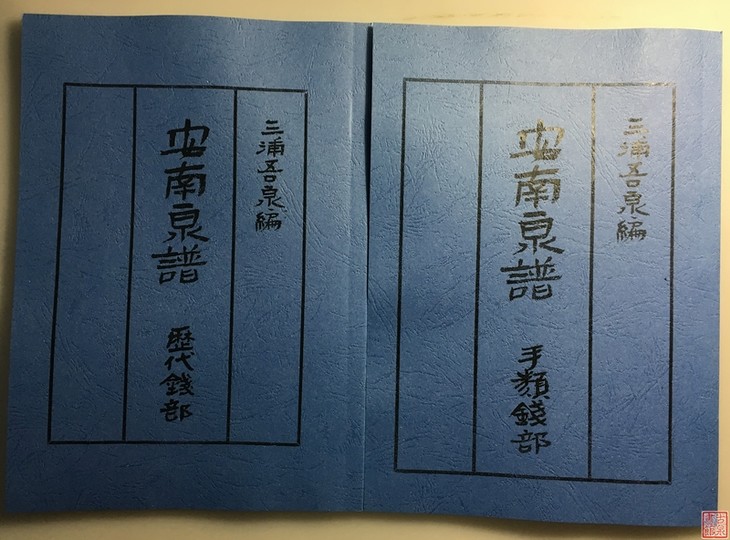 三浦吾泉編
安南泉譜
歷代錢部
三浦吾泉編
安南泉譜
手類錢部